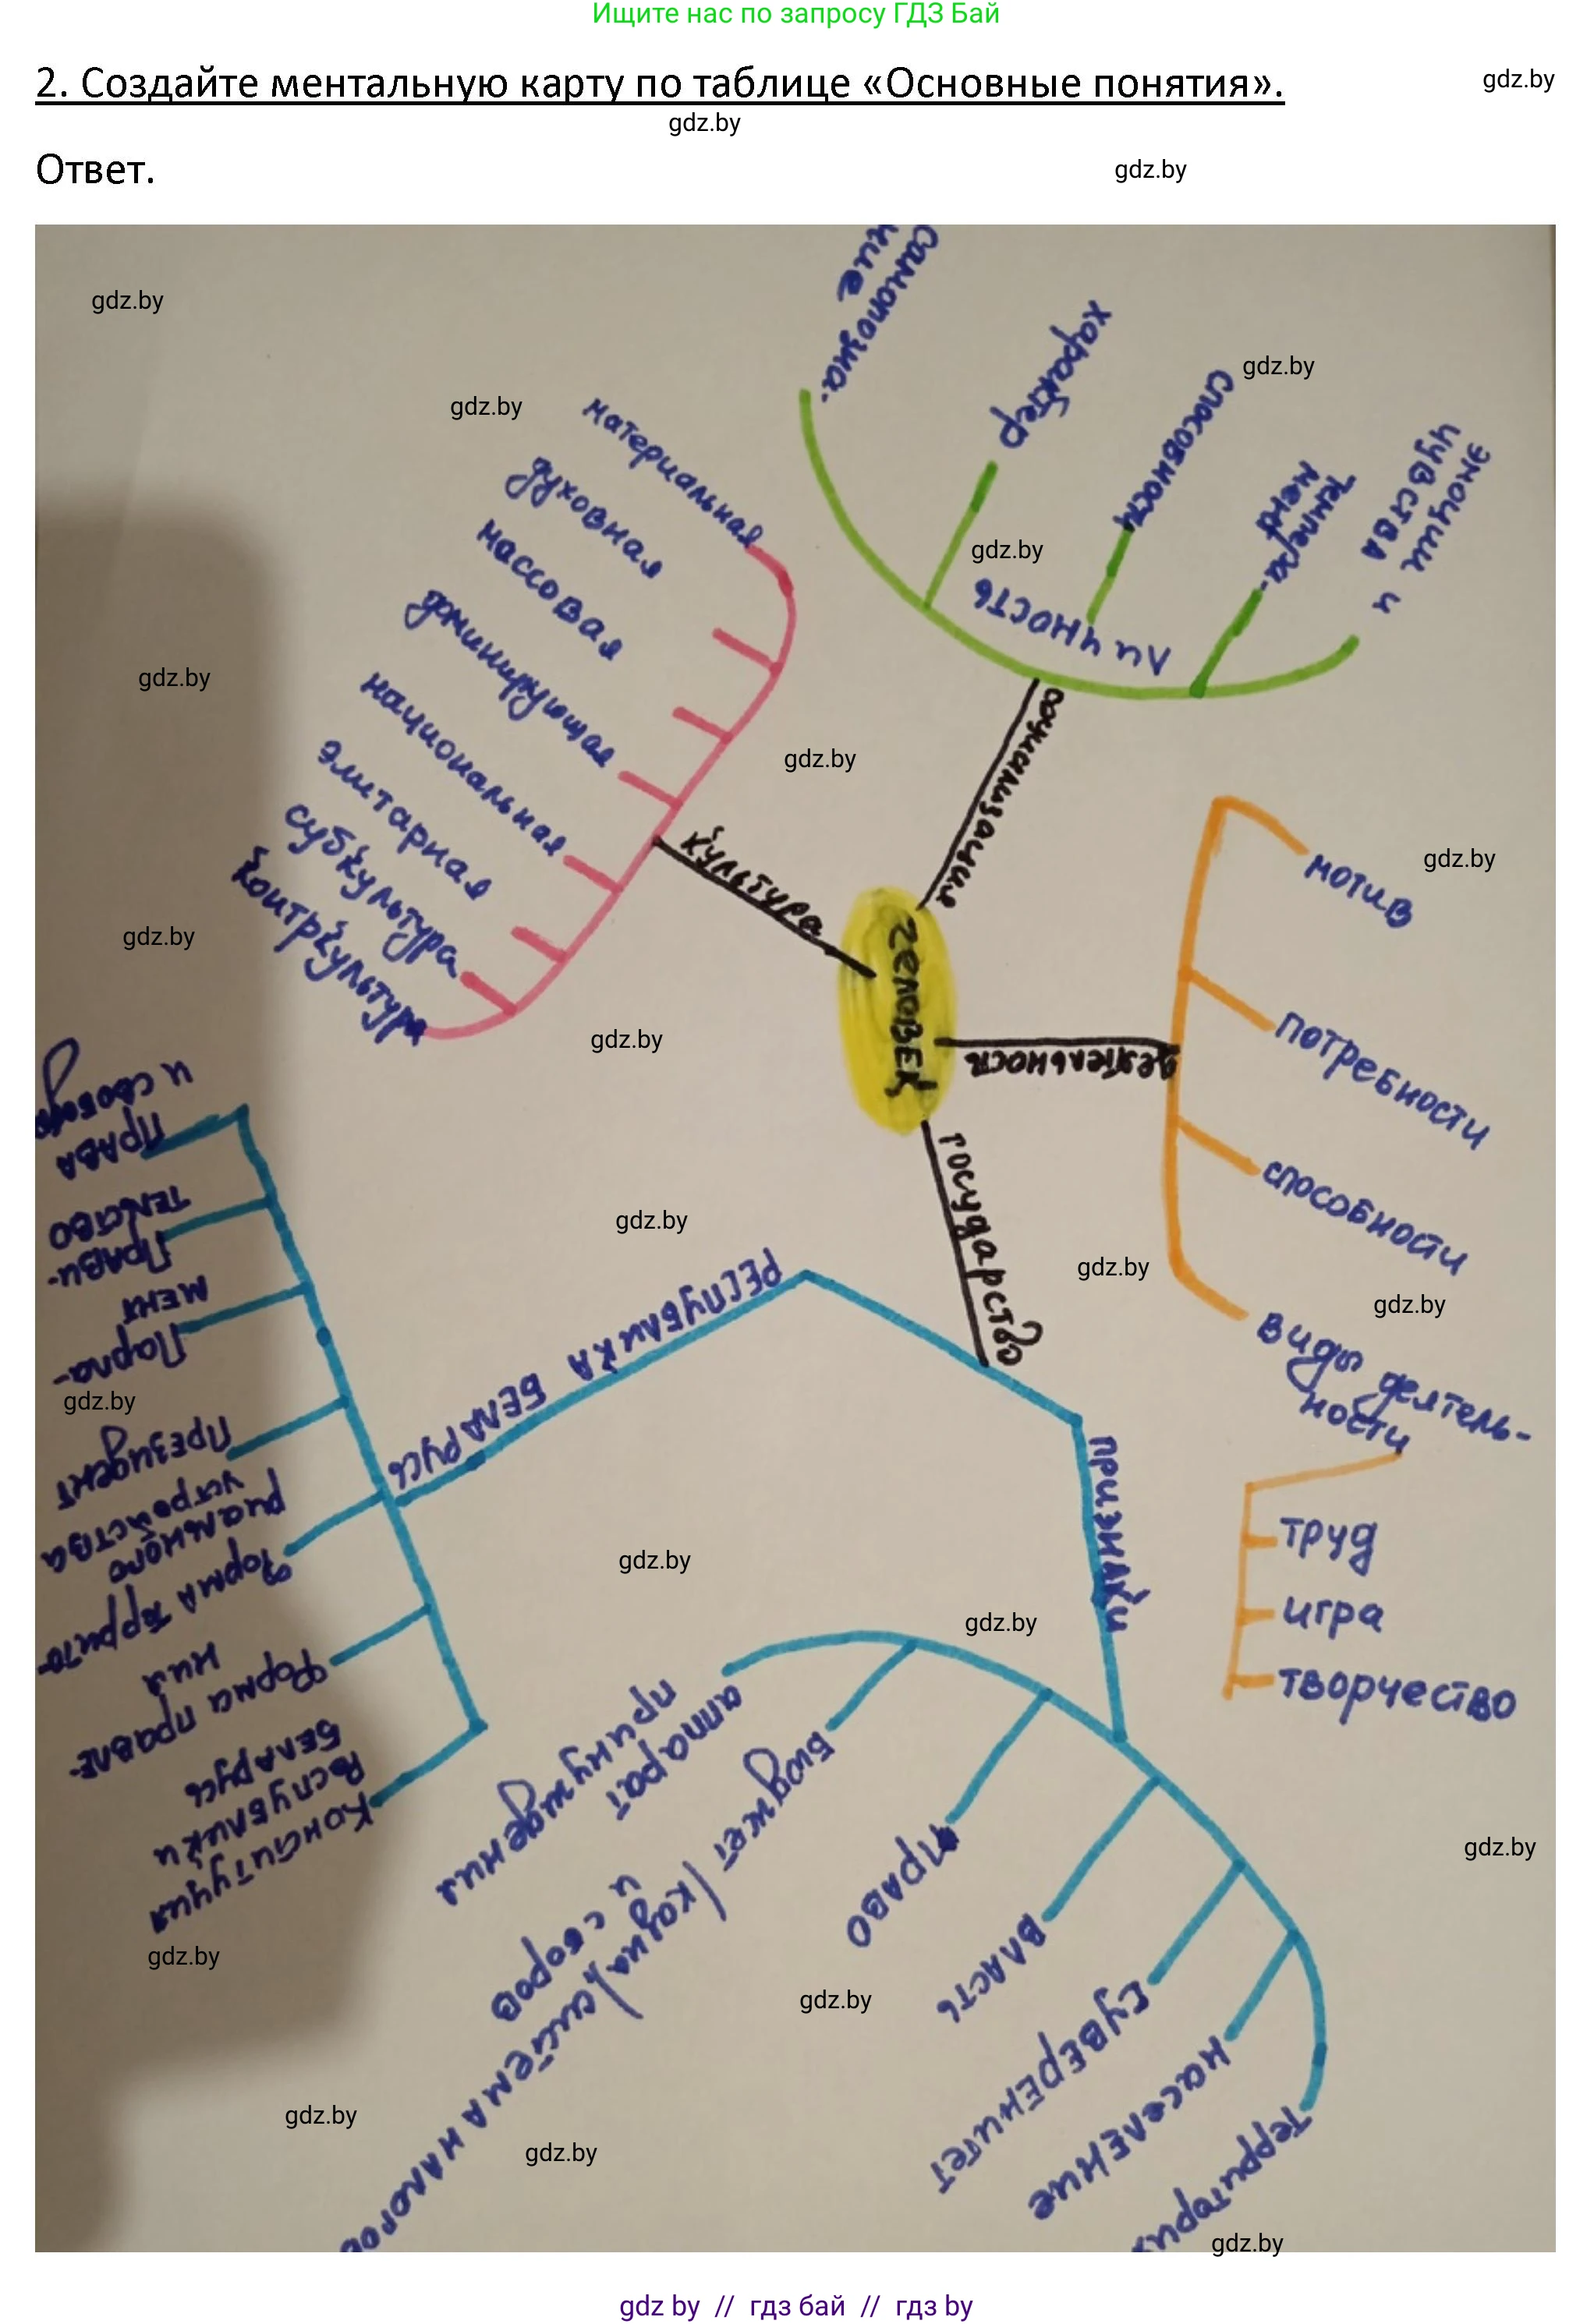 Ищите нас по запросу ГДЗ Бай
2. Создайте ментальную карту по таблице «Основные понятия».
gdz.by
gdz.by
Ответ.
gdz.by
самопозна-
ние
характер
способности
темпера-
мент
эмоции и
чувства
личность
социализация
gdz.by
gdz.by
gdz.by
gdz.by
материальная
духовная
массовая
доминирующая
национальная
элитарная
субкультура
контркультура
культура
gdz.by
gdz.by
gdz.by
gdz.by
gdz.by
человек
деятельность
мотив
потребности
способности
виды деятель-
ности
труд
игра
творчество
государство
gdz.by
gdz.by
gdz.by
РЕСПУБЛИКА БЕЛАРУСЬ
Права
и свободы
Прави-
тельство
Парла-
мент
Президент
Форма террито-
риального
устройства
Форма правле-
ния
Конституция
Республики
Беларусь
gdz.by
gdz.by
gdz.by
gdz.by
признаки
аппарат
принуждения
бюджет (казна) система налогов
и сборов
право
власть
суверенитет
население
территория
gdz.by
gdz.by
gdz.by
gdz.by
gdz.by
gdz.by
gdz by // гдз бай // гдз by